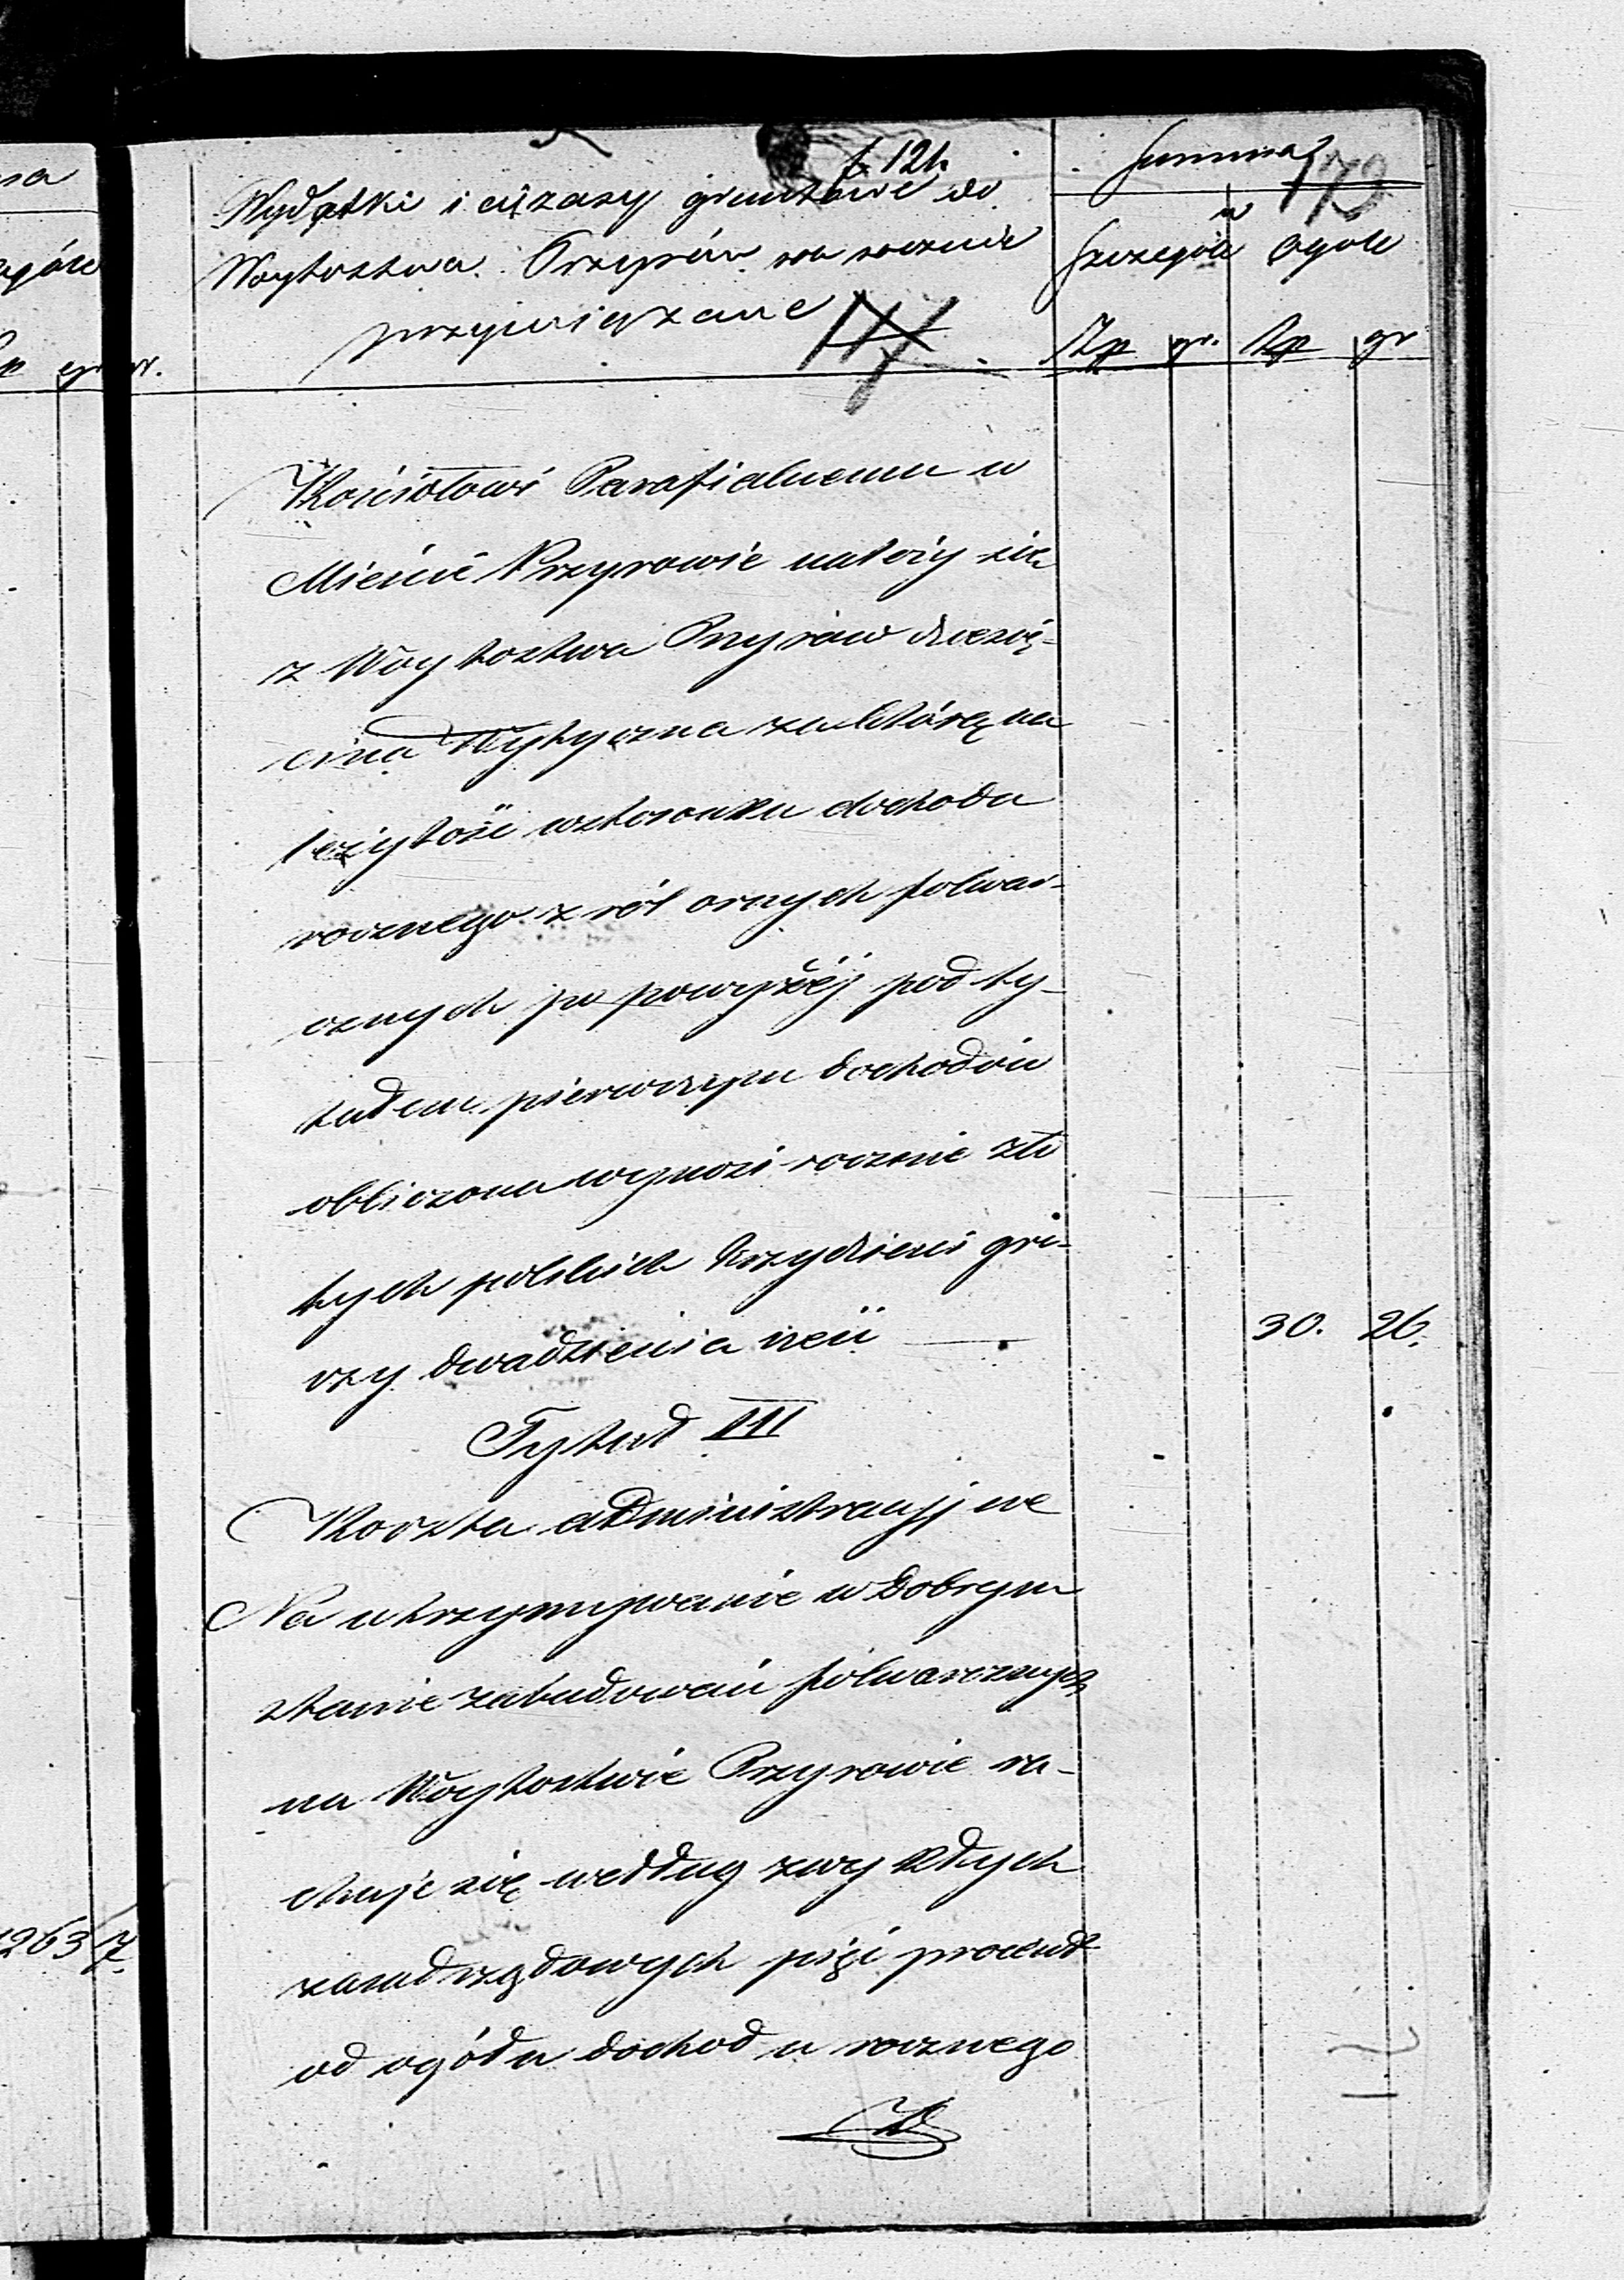 f. 121.
Wydatki i ciężary gruntowe do
Woytostwa Przyrów na rocznie
przywiązane
Summa
w
Szczególe ogóle
Zp gr. Zp gr
173
Kościołowi Parafialnemu w
Mieście Przyrowie należy się
z Woytostwa Przyrów dziesię-
cina Wytyczna za którą na
leżytość wstosunku dochodu
rocznego z ról ornych folwar-
cznych ju powyżéj pod ty-
tułem pierwszym dochodów
obliczona wynosi rocznie zło
tych polskich trzydzieści gro-
szy dwadzieścia sześć
30. 26.
Tytuł III
Koszta administracyjne
Na utrzymywanie w dobrym
stanie zabudowań folwarcznych
na Woytostwie Przyrowie ra-
chuje się według zwykłych
zasad rządowych pięć procent
od ogółu dochodu rocznego
1263 7.